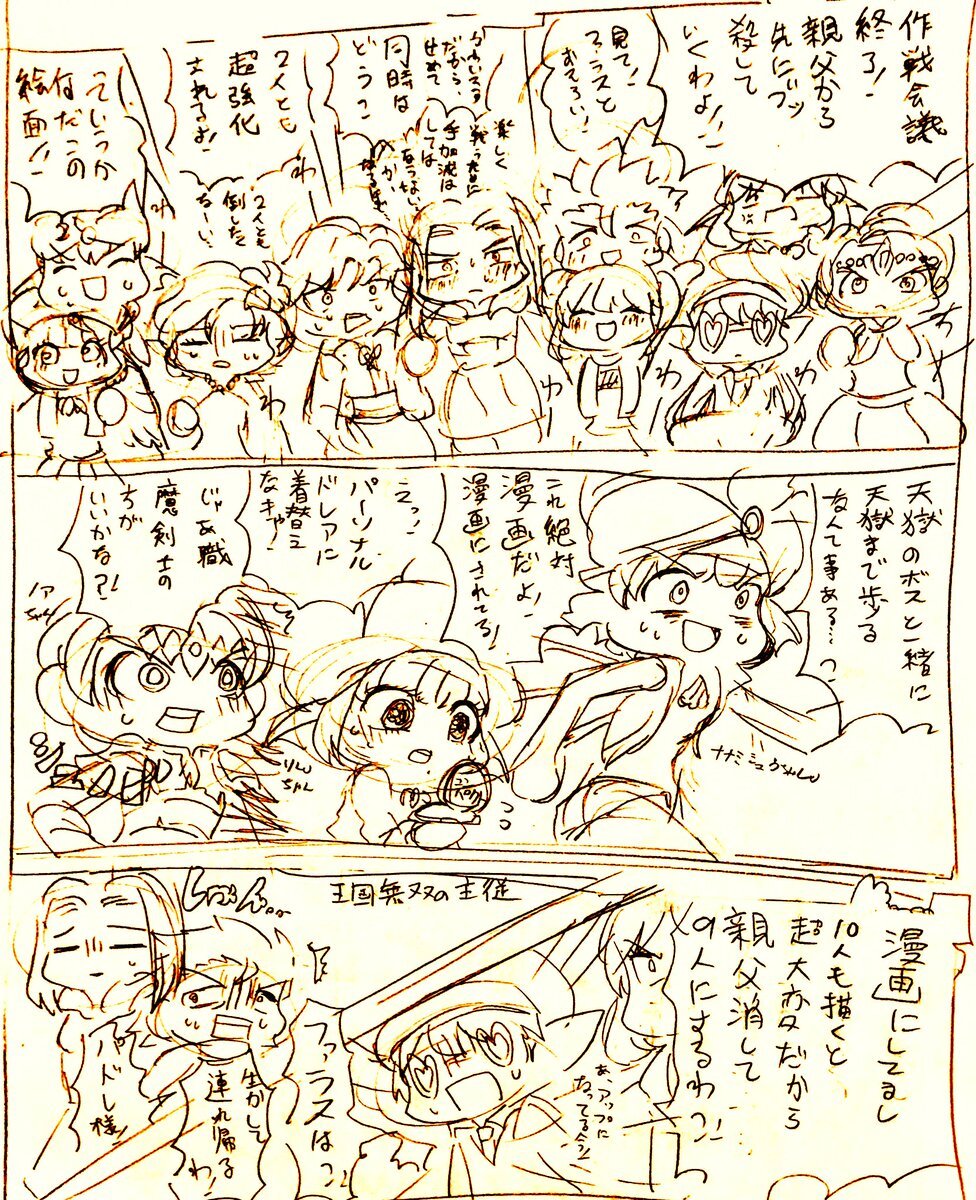 作戦会議
終了！
親父から
先にブッ
殺して
いくわよ！！
見て！
ファラスと
おそろい！
かわいそう
だから、
せめて
同時は
どう？
楽しく
戦う為に
手加減は
しては
2人とも
超強化
されるよ！
2人とも
倒したく
なーい…
っていうか
何だこの
絵面！！
わ
わ
わ
わ
わ
わ
天獄のボスと一緒に
天獄まで歩る
なんて事ある…？
これ絶対
漫画だよ！
漫画にされてる！
えっ！
パーソナル
ドレアに
着替え
なきゃ！
じゃあ職
魔剣士の
ちが
いいかな？！
ナナミジュウちゃん
りんちゃん
ノアちゃん
漫画にしてるし
10人も描くと
超大変だから
親父消して
9人にするわ！
あ、アップに
なってる今！
王国無双の主従
ファラスは
生かして
連れ帰る
わ！
しょぼん…
パドレ様！